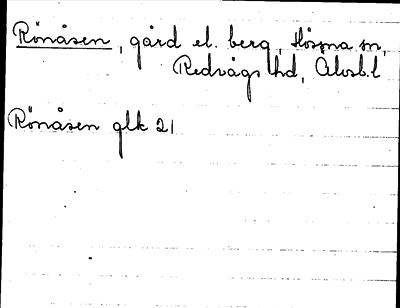 Rönåsen, gård el. berg, Hössna sn,
Redvägs hd, Älvsb.l
Rönåsen glk 21